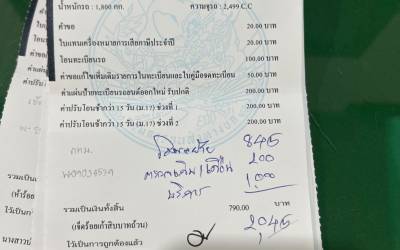 น้ำหนักรถ : 1,800 กก. ความจุรถ : 2,499 C.C
ค่าขอ 20.00 บาท
ใบแทนเครื่องหมายการเสียภาษีประจำปี 20.00 บาท
โอนทะเบียนรถ 100.00 บาท
ค่าขอแก้ไขเพิ่มเติมรายการในทะเบียนและใบคู่มือจดทะเบียน 50.00 บาท
ค่าแผ่นป้ายทะเบียนรถยนต์ออกใหม่ รับปกติ 200.00 บาท
ค่าปรับโอนช้ากว่า 15 วัน (ม.17) ช่วงที่ 1 200.00 บาท
ค่าปรับโอนช้ากว่า 15 วัน (ม.17) ช่วงที่ 2 200.00 บาท
กทม. 845
200
บริการ 1,000
รวมเป็นเงินทั้งสิ้น 790.00 บาท
(เจ็ดร้อยเก้าสิบบาทถ้วน) 2,045
ไว้เป็นการถูกต้องแล้ว
รวมเป็นเงิน
(ห้าร้อย
ไว้เป็นการ
นางสาวป